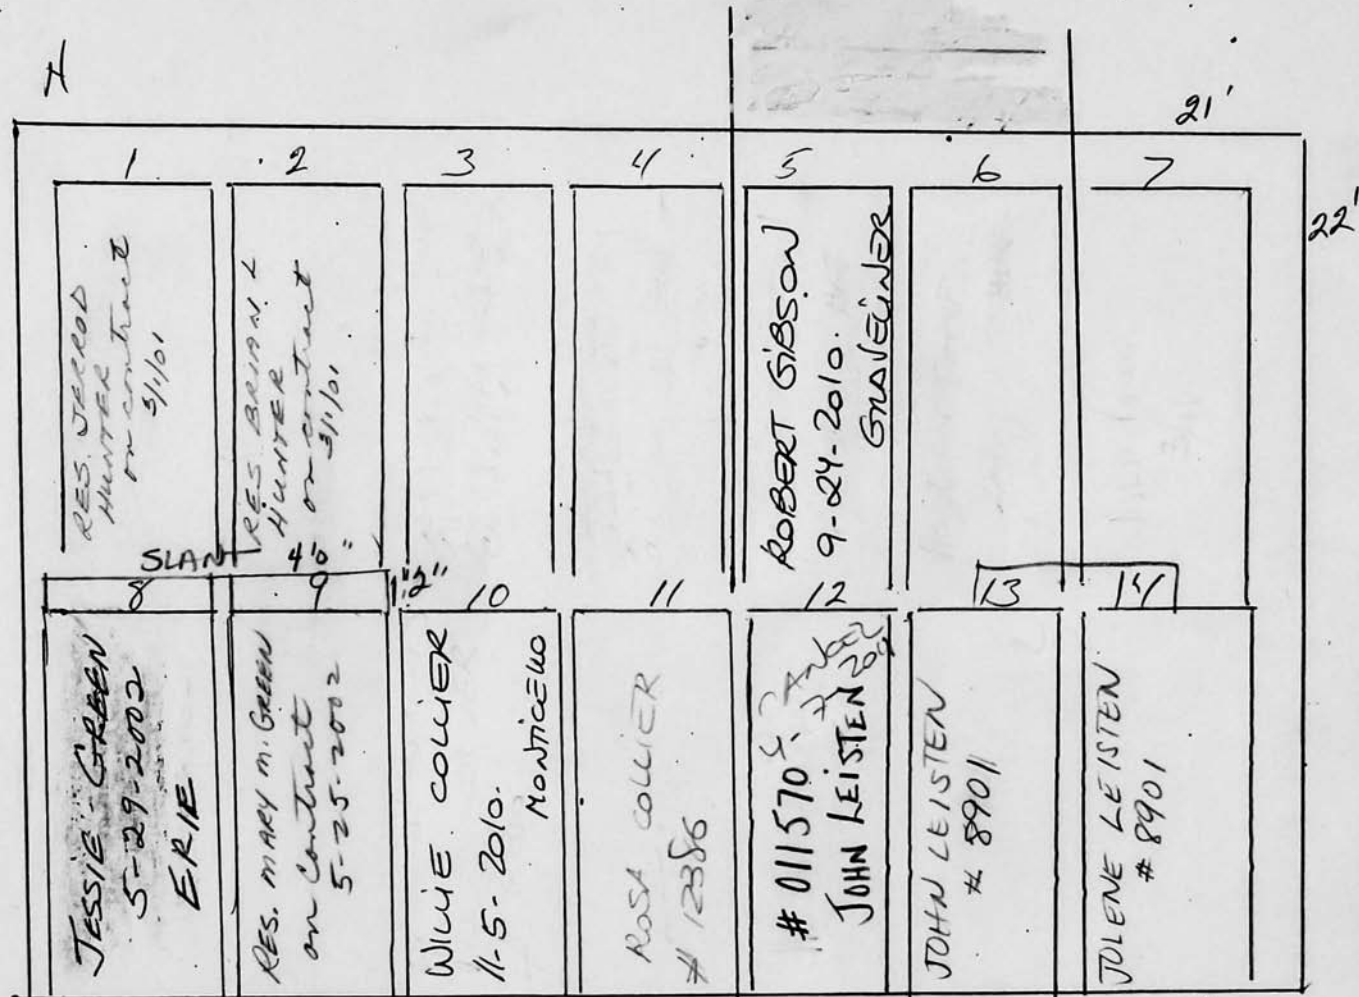 21'
22'
1
2
3
4
5
6
7
RES. JERROD
HUNTER
on contract
3/1/01
RES. BRIAN L
HUNTER
on contract
3/1/01
ROBERT GIBSON
9-24-2010.
SLANT
4'0"
1'2"
8
9
10
11
12
13
14
JESSIE GREEN
5-29-2002
ERIE
RES. MARY M. GREEN
on Contract
5-25-2002
WILLIE COLLIER
11-5-2010.
MONTICELLO
ROSA COLLIER
# 12386
# 011570
JOHN LEISTEN
JOHN LEISTEN
# 8901
JOLENE LEISTEN
# 8901